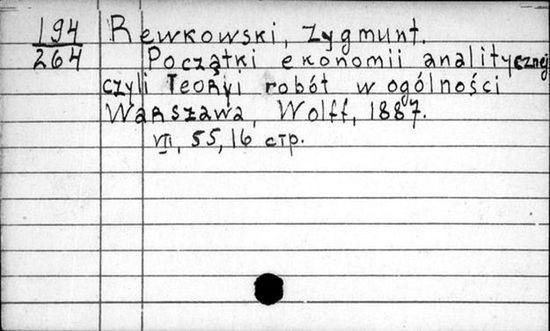 194 Rewkowski, Zygmunt.
264 Początki ekonomii analitycznej
czyli Teoryi robót w ogólności
Warszawa, Wolff, 1887.
VII, 55, 16 стр.